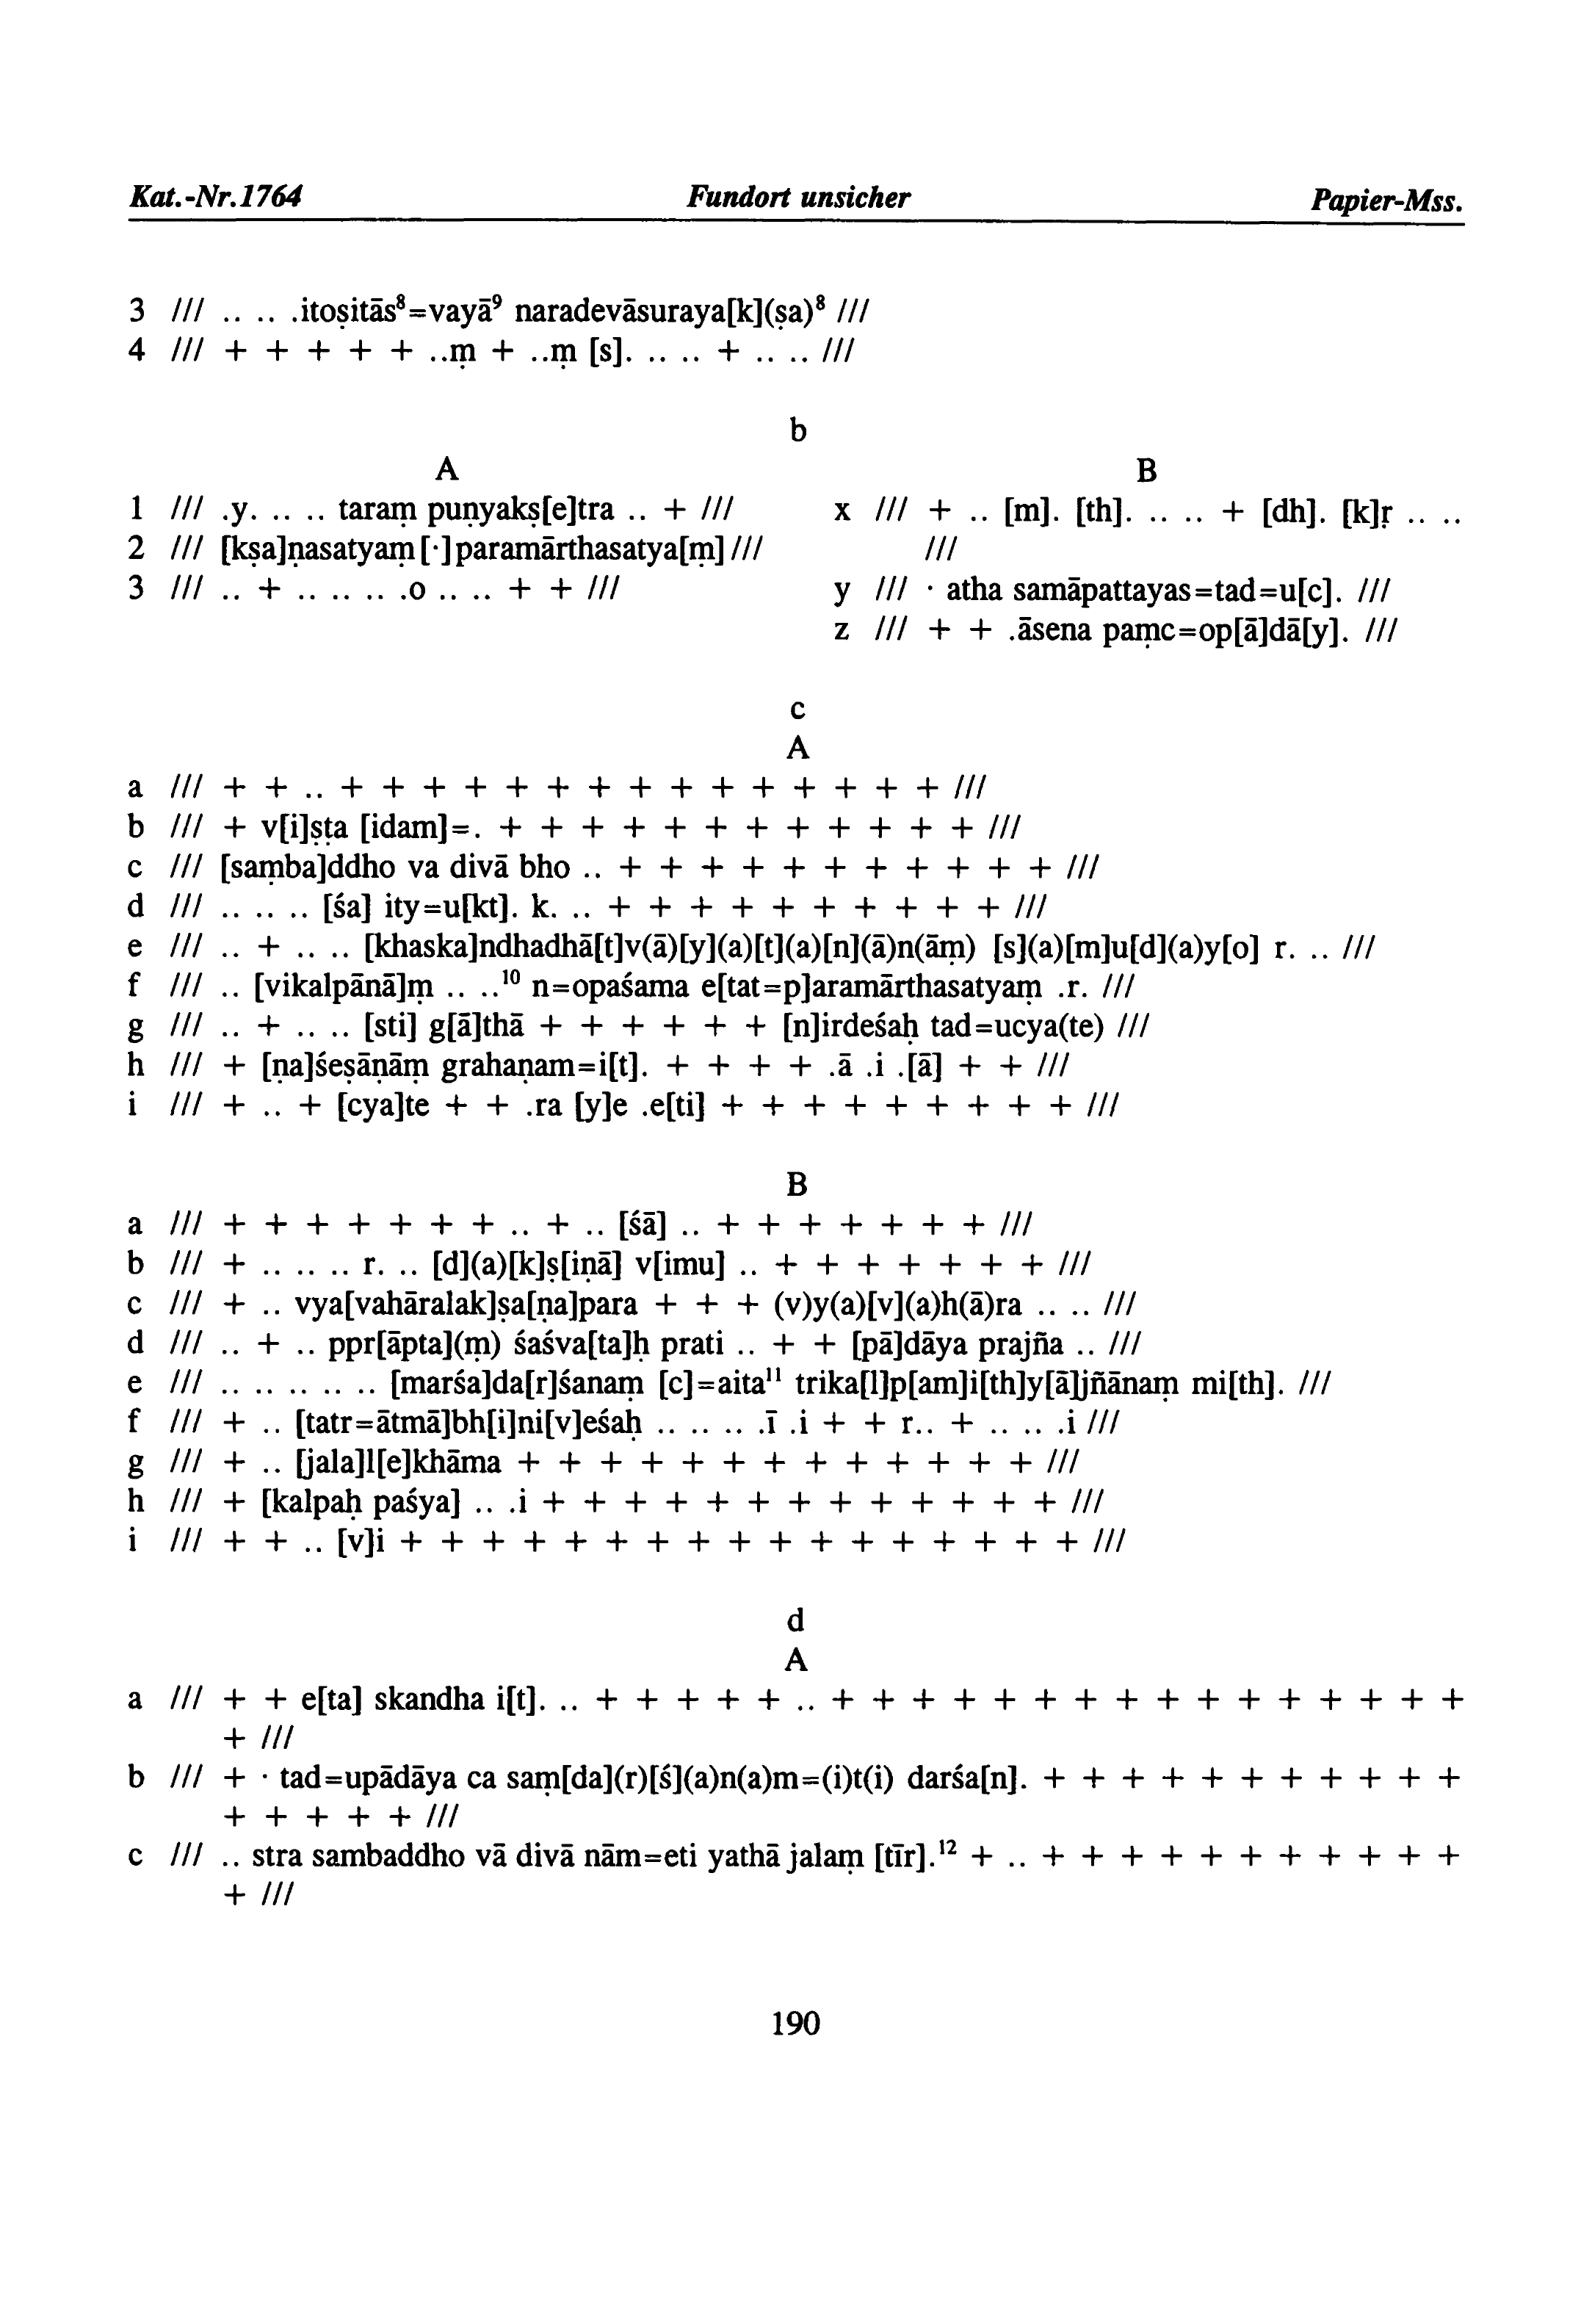 Kat.-Nr.1764 Fundort unsicher Papier-Mss.
3 /// .. .. .itoṣitās⁸=vayā⁹ naradevāsuraya[k](ṣa)⁸ ///
4 /// + + + + + ..ṃ + ..ṃ [s]. .. .. + .. .. ///
b
A
1 /// .y. .. .. taraṃ puṇyakṣ[e]tra .. + ///
2 /// [kṣa]ṇasatyaṃ [·] paramārthasatya[ṃ] ///
3 /// .. + .. .. .. .o .. .. + + ///
B
x /// + .. [m]. [th]. .. .. + [dh]. [k]ṛ .. ..
///
y /// · atha samāpattayas=tad=u[c]. ///
z /// + + .āsena paṃc=op[ā]dā[y]. ///
c
A
a /// + + .. + + + + + + + + + + + + + + + ///
b /// + v[i]ṣṭa [idam]=. + + + + + + + + + + + + ///
c /// [saṃba]ddho va divā bho .. + + + + + + + + + + + ///
d /// .. .. .. [śa] ity=u[kt]. k. .. + + + + + + + + + + ///
e /// .. + .. .. [khaska]ndhadhā[t]v(ā)[y](a)[t](a)[n](ā)n(āṃ) [s](a)[m]u[d](a)y[o] r. .. ///
f /// .. [vikalpānā]ṃ .. ..¹⁰ n=opaśama e[tat=p]aramārthasatyaṃ .r. ///
g /// .. + .. .. [sti] g[ā]thā + + + + + + [n]irdeśaḥ tad=ucya(te) ///
h /// + [ṇa]śeṣāṇāṃ grahaṇam=i[t]. + + + + .ā .i .[ā] + + ///
i /// + .. + [cya]te + + .ra [y]e .e[ti] + + + + + + + + + ///
B
a /// + + + + + + + .. + .. [śā] .. + + + + + + + ///
b /// + .. .. .. r. .. [d](a)[k]ṣ[iṇā] v[imu] .. + + + + + + + ///
c /// + .. vya[vahāralak]ṣa[ṇa]para + + + (v)y(a)[v](a)h(ā)ra .. .. ///
d /// .. + .. ppr[āpta](ṃ) śaśva[ta]ḥ prati .. + + [pā]dāya prajña .. ///
e /// .. .. .. .. .. [marśa]da[r]śanaṃ [c]=aita¹¹ trika[l]p[am]i[th]y[ā]jñānaṃ mi[th]. ///
f /// + .. [tatr=ātmā]bh[i]ni[v]eśaḥ .. .. .. .ī .i + + r.. + .. .. .i ///
g /// + .. [jala]l[e]khāma + + + + + + + + + + + + + ///
h /// + [kalpaḥ paśya] .. .i + + + + + + + + + + + + + ///
i /// + + .. [v]i + + + + + + + + + + + + + + + + + ///
d
A
a /// + + e[ta] skandha i[t]. .. + + + + + .. + + + + + + + + + + + + + + + +
+ ///
b /// + · tad=upādāya ca saṃ[da](r)[ś](a)n(a)m=(i)t(i) darśa[n]. + + + + + + + + + + +
+ + + + + ///
c /// .. stra sambaddho vā divā nām=eti yathā jalaṃ [tīr].¹² + .. + + + + + + + + + + +
+ ///
190